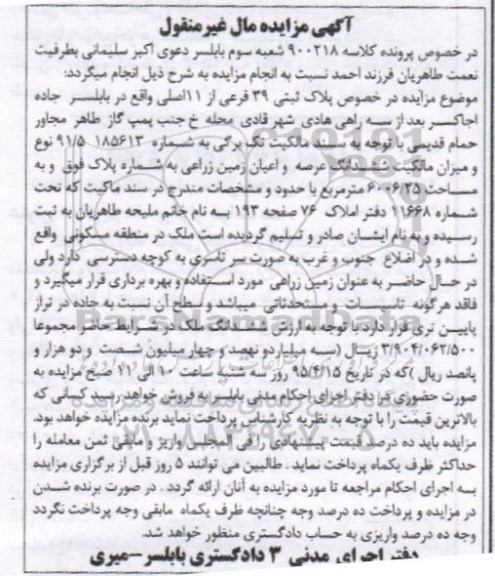 آگهی مزایده مال غیرمنقول
در خصوص پرونده کلاسه ۹۰۰۲۱۸ شعبه سوم بابلسر دعوی اکبر سلیمانی بطرفیت
نعمت طاهریان فرزند احمد نسبت به انجام مزایده به شرح ذیل انجام میگردد:
موضوع مزایده در خصوص پلاک ثبتی ۳۹ فرعی از ۱۱اصلی واقع در بابلسر جاده
اجاکسر بعد از سه راهی هادی شهر قادی محله خ جنب پمپ گاز طاهر مجاور
حمام قدیمی با توجه به سند مالکیت تک برگی به شماره ۱۸۵۶۱۳ ۹۱/۵ نوع
و میزان مالکیت ششدانگ عرصه و اعیان زمین زراعی به شماره پلاک فوق و به
مساحت ۶۰۰۶/۲۵ مترمربع با حدود و مشخصات مندرج در سند ماکیت که تحت
شماره ۱۱۶۶۸ دفتر املاک ۷۶ صفحه ۱۹۳ به نام خانم ملیحه طاهریان به ثبت
رسیده و به نام ایشان صادر و تسلیم گردیده است ملک در منطقه مسکونی واقع
شده و در اضلاع جنوب و غرب به صورت سر تاسری به کوچه دسترسی دارد ولی
در حال حاضر به عنوان زمین زراعی مورد استفاده و بهره برداری قرار میگیرد و
فاقد هرگونه تاسیسات و مستحدثاتی میباشد و سطح آن نسبت به جاده در تراز
پایین تری قرار دارد با توجه به ارزش ششدانگ ملک در شرایط حاضر مجموعا
۳/۹۰۴/۰۶۲/۵۰۰ ریال (سه میلیارد و نهصد و چهار میلیون شصت و دو هزار و
پانصد ریال )که در تاریخ ۹۵/۴/۱۵ روز سه شنبه ساعت ۱۰ الی ۱۱ صبح مزایده به
صورت حضوری در دفتر اجرای احکام مدنی بابلسر به فروش خواهد رسید کسانی که
بالاترین قیمت را با توجه به نظریه کارشناس پرداخت نماید برنده مزایده خواهد بود.
مزایده باید ده درصد قیمت پیشنهادی را فی المجلس واریز و مابقی ثمن معامله را
حداکثر ظرف یکماه پرداخت نماید . طالبین می توانند ۵ روز قبل از برگزاری مزایده
به اجرای احکام مراجعه تا مورد مزایده به آنان ارائه گردد . در صورت برنده شدن
در مزایده و پرداخت ده درصد وجه چنانچه ظرف یکماه مابقی وجه پرداخت نگردد
وجه ده درصد واریزی به حساب دادگستری منظور خواهد شد.
دفتر اجرای مدنی ۳ دادگستری بابلسر-میری
ParsNamadData